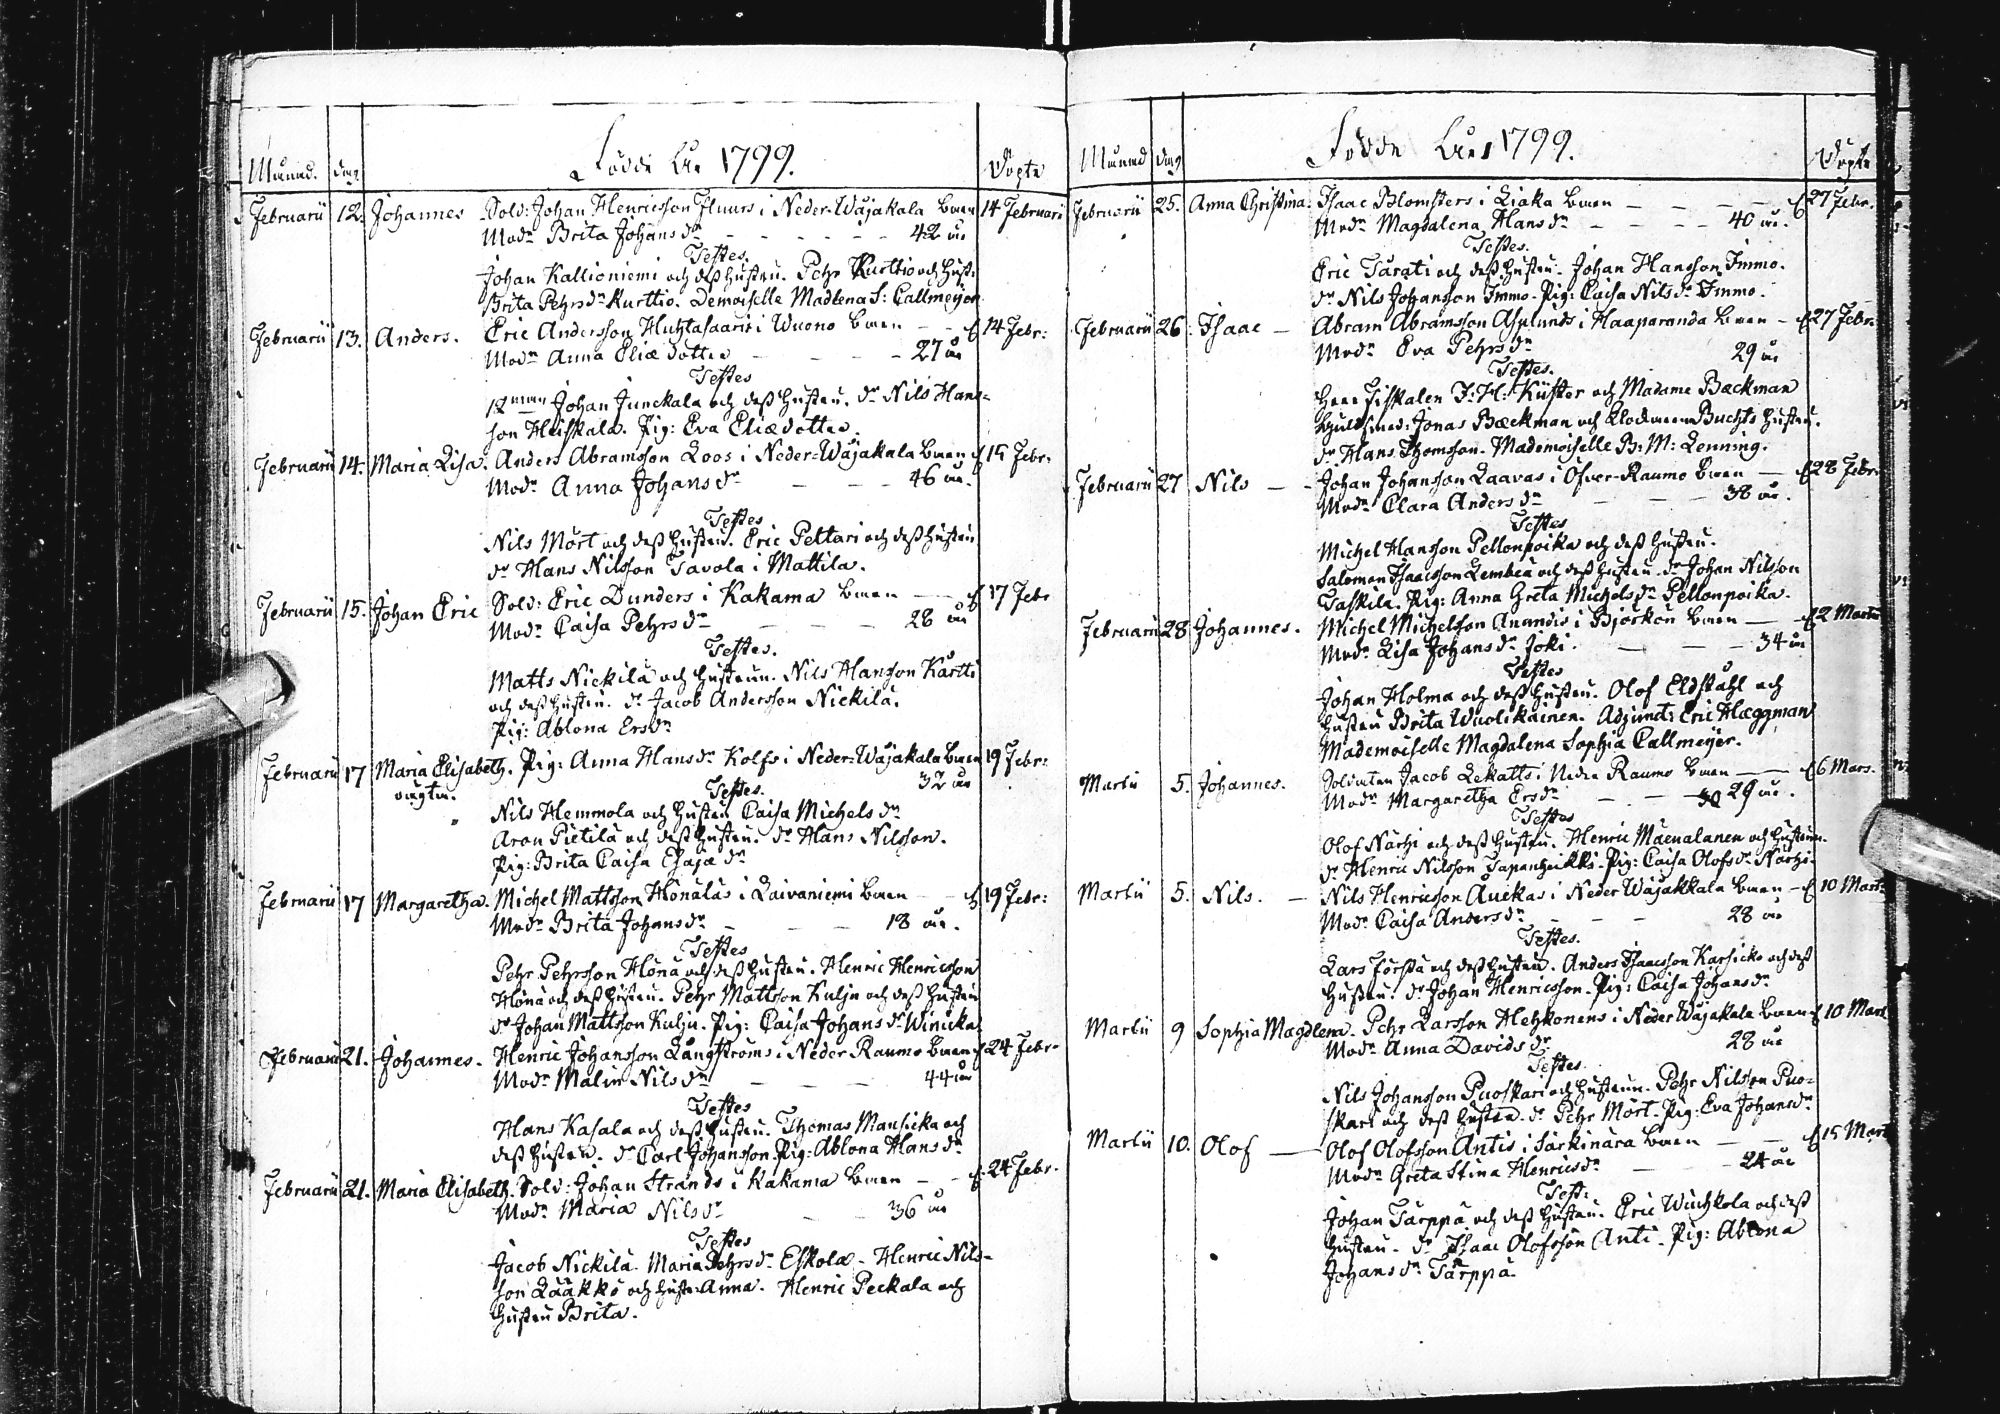 Månad. dag. Födde År 1799. Döpte
Februarii 12. Johannes Sold: Johan Henricsson Fluurs i Neder-Wojakala barn 14 Februarii
Modn Brita Johansdr - - - 42 år
Testes.
Johan Kallioniemi och dess hustru. Pehr Kurttio och hust:
Brita Pehrsdr Kurttio. Demoiselle Madlena S: Callmeijer
Februarii 13. Anders. Eric Andersson Huhtasaaris i Wuono barn - - 14 Febr:
Modn Anna Eliæ dotter - - - 27 år
Testes
12man Johan Junckala och dess hustru. dr Nils Hans-
son Heiskala. Pig: Eva Eliædotter.
Februarii 14. Maria Lisa. Anders Abramsson Loos i Neder-Wojakala barn 15 Febr.
Modn Anna Johansdr - - - 46 år.
Testes
Nils Mört och dess hustru. Eric Pettari och dess hustru
dr Hans Nilsson Tavola i Mattila.
Februarii 15. Johan Eric Sold: Eric Dunders i Kakama barn - - 17 Febr
Modn Caisa Pehrsdr - - - 28 år
Testes.
Matts Nickilä och hustrun. Nils Hansson Kartti
och dess hustru. dr Jacob Andersson Nickilä.
Pig: Ablona Ersdr
Februarii 17 Maria Elisabeth. Pig: Anna Hansdr Kolfs i Neder-Wojakala barn 19 Febr:
oägta. 32 år
Testes.
Nils Hemmola och hustru Caisa Michelsdr
Aron Pietilä och dess hustru. dr Hans Nilsson.
Pig: Brita Caisa Esajædr
Februarii 17 Margaretha. Michel Mattsson Hönäläs i Laivaniemi barn - 19 Febr:
Modn Brita Johansdr - - - 18 år.
Testes
Pehr Pehrsson Hönä och dess hustru. Henric Henricsson
Hönä och dess hustru. Pehr Mattsson Kulju och dess hustru
dr Johan Mattsson Kulju. Pig: Caisa Johansdr Winicka
Februarii 21. Johannes. Henric Johansson Långströms i Neder Raumo barn 24 Febr.
Modn Malin Nilsdr - - - 44 år
Testes
Hans Kasala och dess hustru. Thomas Mansicka och
dess hustru. dr Carl Johansson. Pig: Ablona Hansdr
Februarii 21. Maria Elisabeth. Sold: Johan Strands i Kakama barn - - 24 Febr.
Modn Maria Nilsdr - - 36 år
Testes
Jacob Nickilä. Maria Pehrsdr Eskola. Henric Nils-
son Lääkkö och hustr: Anna. Henric Peckala och
hustru Brita.
Månad dag Födde År 1799. Döpte
Februarii 25. Anna Christina. Isaac Blomsters i Liaka barn - - - 27 Febr.
Modn Magdalena Hansdr - - - 40 år.
Testes.
Eric Tarati och dess hustru. Johan Hansson Immo.
dr Nils Johansson Immo. Pig: Caisa Nilsdr Immo.
Februarii 26 Isaac - Abram Abramsson Asplunds i Haaparanda barn - 27 Febr.
Modn Eva Pehrsdr 29 år
Testes.
Herr Fiskalen J: H: Küster och Madame Bæckman
Guldsmed: Jonas Bæckman och Klockaren Buchts hustru.
dr Hans Thomsson. Mademoiselle B: M: Lenning.
Februarii 27 Nils - - Johan Johansson Laavas i Ofver-Raumo barn - 28 Febr.
Modn Clara Andersdr - - 38 år.
Testes
Michel Hansson Pellonpoika och dess hustru.
Salomon Isaacsson Lembeä och dess hustru. dr Johan Nilsson
Taskila. Pig: Anna Greta Michelsdr Pellonpoika.
Februarii 28 Johannes. Michel Michelsson Anandis i Björkön barn - 2 Martii
Modn Lisa Johansdr Joki. - - - 34 år
Testes
Johan Holma och dess hustru. Olof Eldståhl och
hustru Brita Wuolikainen. Adjunct: Eric Hæggman
Mademoiselle Magdalena Sophia Callmeijer.
Martii 5. Johannes. Soldaten Jacob Lekatts i Nedre Raumo barn - 6 Mars.
Modn Margaretha Ersdr - - 29 år.
Testes
Olof Närhi och dess hustru. Henric Maenalanen och hustrun.
dr Henric Nilsson Tapanheikki. Pig: Caisa Olofsdr Närhi.
Martii 5. Nils. - Nils Henricsson Auckas i Neder Wojakkala barn - 10 Mars.
Modn Caisa Andersdr - - - 28 år
Testes.
Lars Förstä och dess hustru. Anders Isaacsson Karsicko och dess
hustru. dr Johan Henricsson. Pig: Caisa Johansdr
Martii 9 Sophia Magdlena. Pehr Larsson Hehkonens i Neder Wojakala barn 10 Mars
Modn Anna Davidsdr 28 år
Testes.
Nils Johansson Puoskari och hustrun. Pehr Nilsson Puo-
skari och dess hustru. dr Pehr Mört. Pig: Eva Johansdr
Martii 10. Olof - Olof Olofsson Antis i Särkinära barn - - 15 Mars
Modn Greta Stina Henricsdr - - 24 år
Test:
Johan Tärppä och dess hustru. Eric Wuchkola och dess
hustru. dr Isaac Olofsson Anti. Pig: Ablona
Johansdr Tärppä.